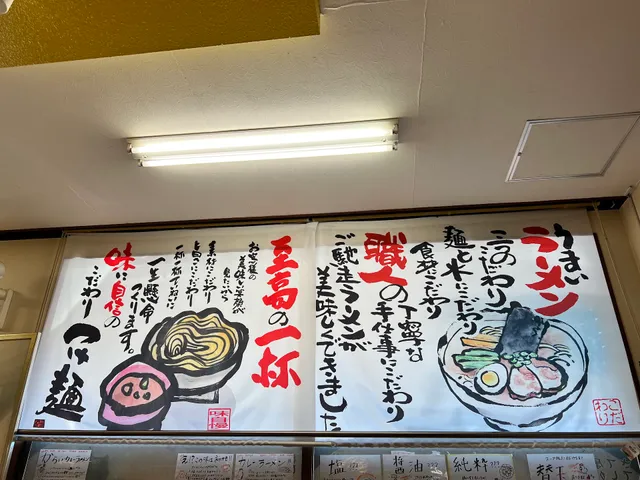 うまい
ラーメン
三つのこだわり
麺と水にこだわり
食材にこだわり
職人の丁寧な
手仕事にこだわり
ご馳走ラーメンが
美味しくできました
こだわり
至高の一杯
お客様の
美味しい笑顔が
見たいから
素材にこだわり
旨さにこだわり
一杯一杯ていねいに
一生懸命
つくります。
味に自信の
こだわり
つけ麺
味自慢
カレーラーメン
塩
醤油
純粋
替玉